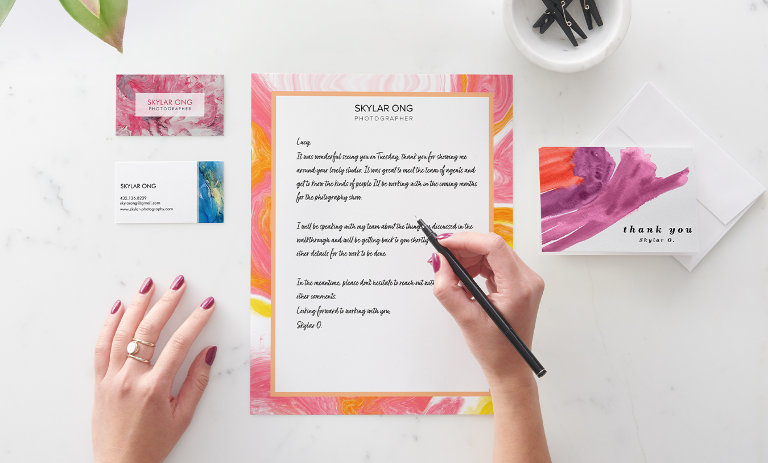 SKYLAR ONG
PHOTOGRAPHER
SKYLAR ONG
430.136.8239
skylarong@gmail.com
www.skylarphotography.com
SKYLAR ONG
PHOTOGRAPHER
Lucy,
It was wonderful seeing you on Tuesday, thank you for showing me
around your lovely studio. It was great to meet the team of agents and
get to know the kinds of people I'll be working with on the coming months
for the photography show.
I will be speaking with my team about the discussed in the
walkthrough and will be getting back to you shortly
other details for the work to be done.
In the meantime, please don't hesitate to reach out
other comments.
Looking forward to working with you,
Skylar O.
thank you
Skylar O.